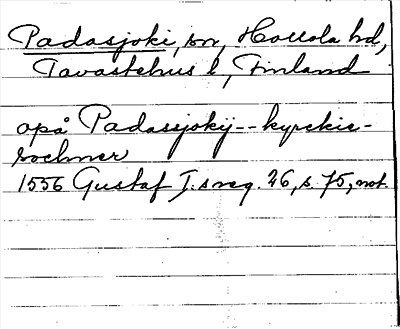 Padasjoki, sn, Hollola hd,
Tavastehus l, Finland
opå Padassjokij-- kyrckie-
sochner
1556 Gustaf I:s reg. 26, s. 75, not.